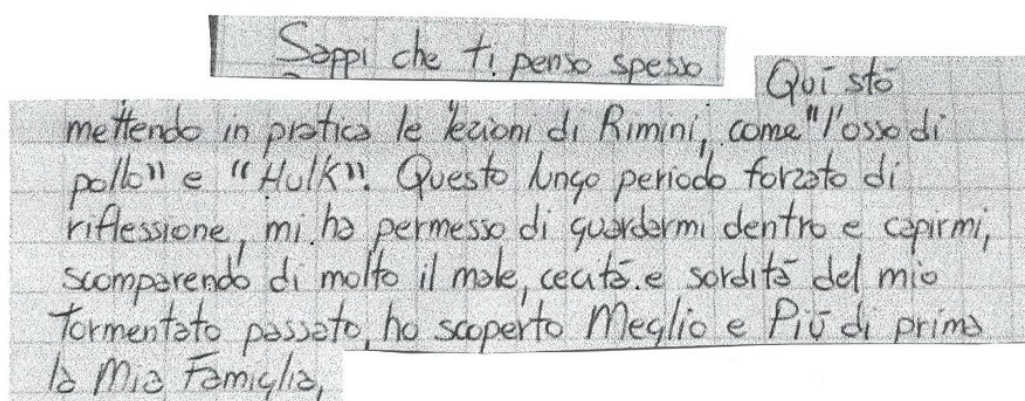 Sappi che ti penso spesso
Qui sto
mettendo in pratica le lezioni di Rimini, come "l'osso di
pollo" e "Hulk". Questo lungo periodo forzato di
riflessione, mi ha permesso di guardarmi dentro e capirmi,
scomparendo di molto il male, cecità e sordità del mio
tormentato passato, ho scoperto Meglio e Più di prima
la Mia Famiglia,